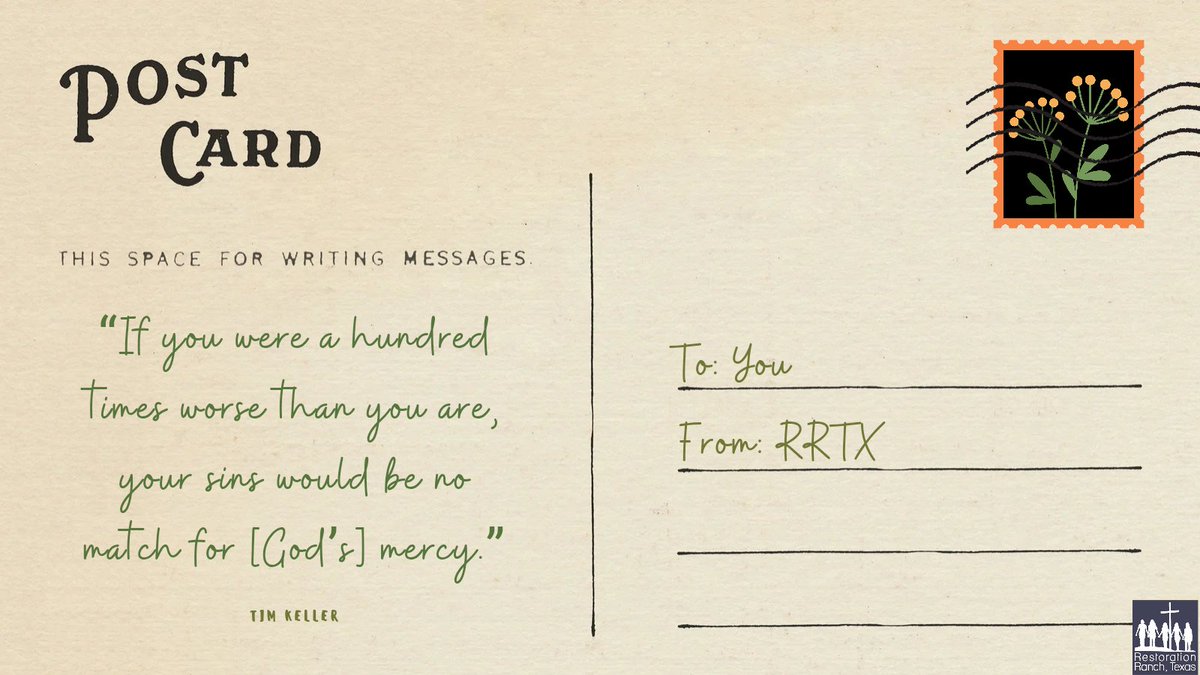 POST
CARD
THIS SPACE FOR WRITING MESSAGES.
“If you were a hundred
times worse than you are,
your sins would be no
match for [God’s] mercy.”
TIM KELLER
To: You
From: RRTX
Restoration
Ranch, Texas